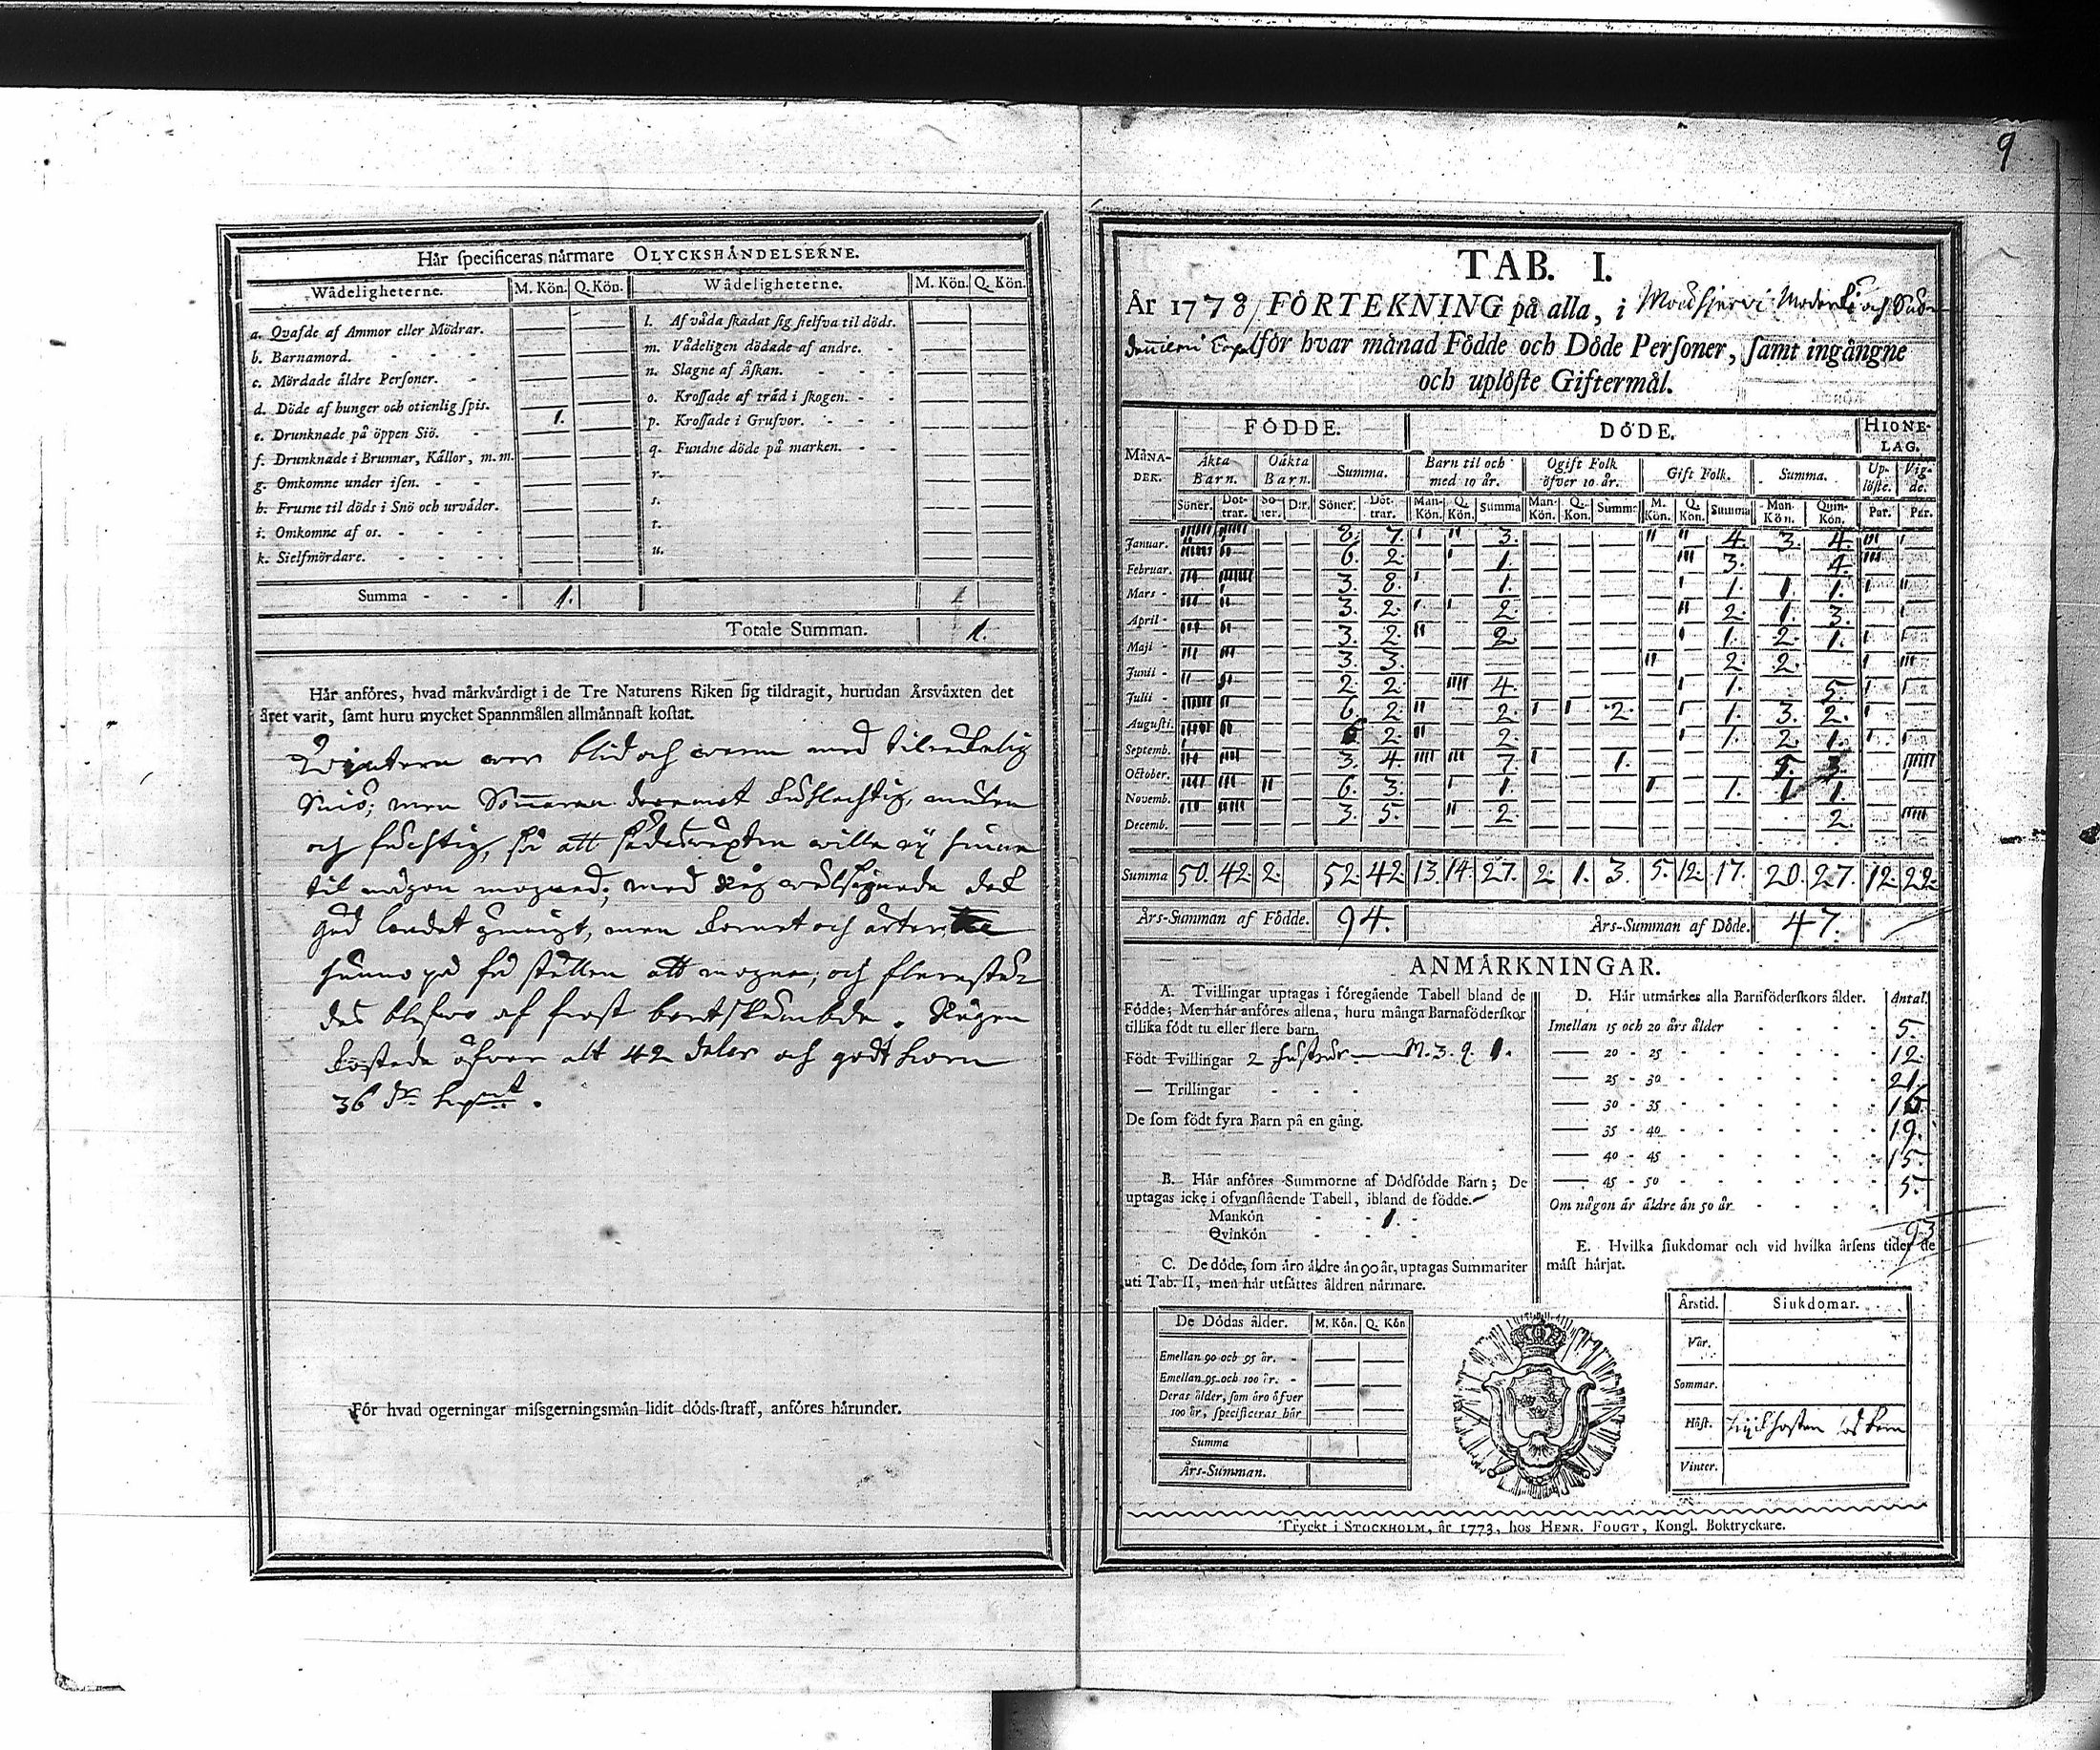 Hår ſpecificeras nårmare OLYCKSHÅNDELSERNE.
Wådeligheterne. M. Kön. Q. Kön. Wådeligheterne. M. Kön. Q. Kön.
a. Qvafde af Ammor eller Mödrar. — — l. Af våda ſkadat ſig ſielfva til döds. — —
b. Barnamord. — — m. Vådeligen dödade af andre. — —
c. Mördade åldre Perſoner. — — n. Slagne af Åſkan. — —
d. Döde af hunger och otienlig ſpis. — — o. Kroſſade af tråd i ſkogen. — —
e. Drunknade på öppen Siö. 1. — p. Kroſſade i Grufvor. — —
f. Drunknade i Brunnar, Kållor, m.m. — — q. Fundne döde på marken. — —
g. Omkomne under iſen. — — r.
h. Fruſne til döds i Snö och urvåder. — — s.
i. Omkomne af os. — — t.
k. Sielfmördare. — — u.
Summa 1. 1
Totale Summan. 1.
Hår anföres, hvad mårkvårdigt i de Tre Naturens Riken ſig tildragit, hurudan Årsvåxten det
året varit, ſamt huru mycket Spannmålen allmånnaſt koſtat.
Wintern war blid och warm med tilräckelig
Sniö; men Sommaren däremot kuhlachtig, mulen
och fuchtig, så att sädeswäxten wille ej hinna
til någon mognad; med råg wälsignade dock
Gud landet ymnigt, men kornet och ärter
hunno på få ställen att mogna, och flerestä-
des blefwo af frost bortskämbde. Rågen
kostade öfwer alt 42 daler och godt korn
36 dr kopmt.
För hvad ogerningar miſsgerningsmån lidit döds-ſtraff, anföres hårunder.
9
TAB. I.
År 1773, FÖRTEKNING på alla, i Mouhijervi Moderk: och Suo-
denniemi Capel för hvar månad Födde och Döde Perſoner, ſamt ingångne
och uplöſte Giftermål.
MÅNADER. FÖDDE. DÖDE. HIONELAG.
Åkta Barn. Oåkta Barn. Summa. Barn til och med 10 år. Ogift Folk öfver 10 år. Gift Folk. Summa. Uplöſte. Vigde.
Söner. Dottrar. Söner. D:r. Söner. Döttrar. ManKön. Q. Kön. Summa ManKön. Q. Kön. Summa M. Kön. Q. Kön. Summa Man-Kön. Quin-Kön. Par. Par.
Januar. 8. 7. 3. 4. 3. 4.
Februar. 6. 2. 1. 3. 4.
Mars 3. 8. 1. 1. 1. 1.
April 3. 2. 2. 2. 1. 3.
Maji 3. 2. 2. 1. 2. 1.
Junii 3. 3. 2. 2.
Julii 2. 2. 4. 1. 5.
Auguſti. 6. 2. 2. 2. 1. 3. 2.
Septemb. 6 2. 2. 1. 2. 1.
October. 3. 4. 7. 1. 5. 3.
Novemb. 6. 3. 1. 1. 1 1.
Decemb. 3. 5. 2. 2.
Summa 50. 42. 2. 52. 42 13. 14. 27. 2. 1. 3. 5. 12. 17. 20. 27. 12. 22.
Års-Summan af Födde. 94. Års-Summan af Döde. 47.
ANMÅRKNINGAR.
A. Tvillingar uptagas i föregående Tabell bland de
Födde; Men hår anföres allena, huru många Barnaföderſkor
tillika födt tu eller flere barn.
Födt Tvillingar 2 hustrur — M. 3. q. 1.
— Trillingar
De ſom födt fyra Barn på en gång.
B. Hår anföres Summorne af Dödfödde Barn; De
uptagas icke i ofvanſtående Tabell, ibland de födde.
Mankön 1.
Qvinkön
C. De döde, ſom åro åldre ån 90 år, uptagas Summariter
uti Tab. II, men hår utſåttes åldren nårmare.
De Dödas ålder. M. Kön. Q. Kön
Emellan 90 och 95 år. — —
Emellan 95 och 100 år. — —
Deras ålder, ſom åro öfver
100 år, ſpecificeras hår — —
Summa
Års-Summan.
D. Hår utmårkes alla Barnföderſkors ålder. Antal.
Imellan 15 och 20 års ålder 5.
— 20 - 25 12.
— 25 - 30 21.
— 30 - 35 16.
— 35 - 40 19.
— 40 - 45 15.
— 45 - 50 5.
Om någon år åldre ån 50 år.
93
E. Hvilka ſiukdomar och vid hvilka årſens tider de
måſt hårjat.
Årstid. Siukdomar.
Vår.
Sommar.
Höſt. kijkhostan hos barn
Vinter.
Tryckt i STOCKHOLM, år 1773, hos HENR. FOUGT, Kongl. Boktryckare.